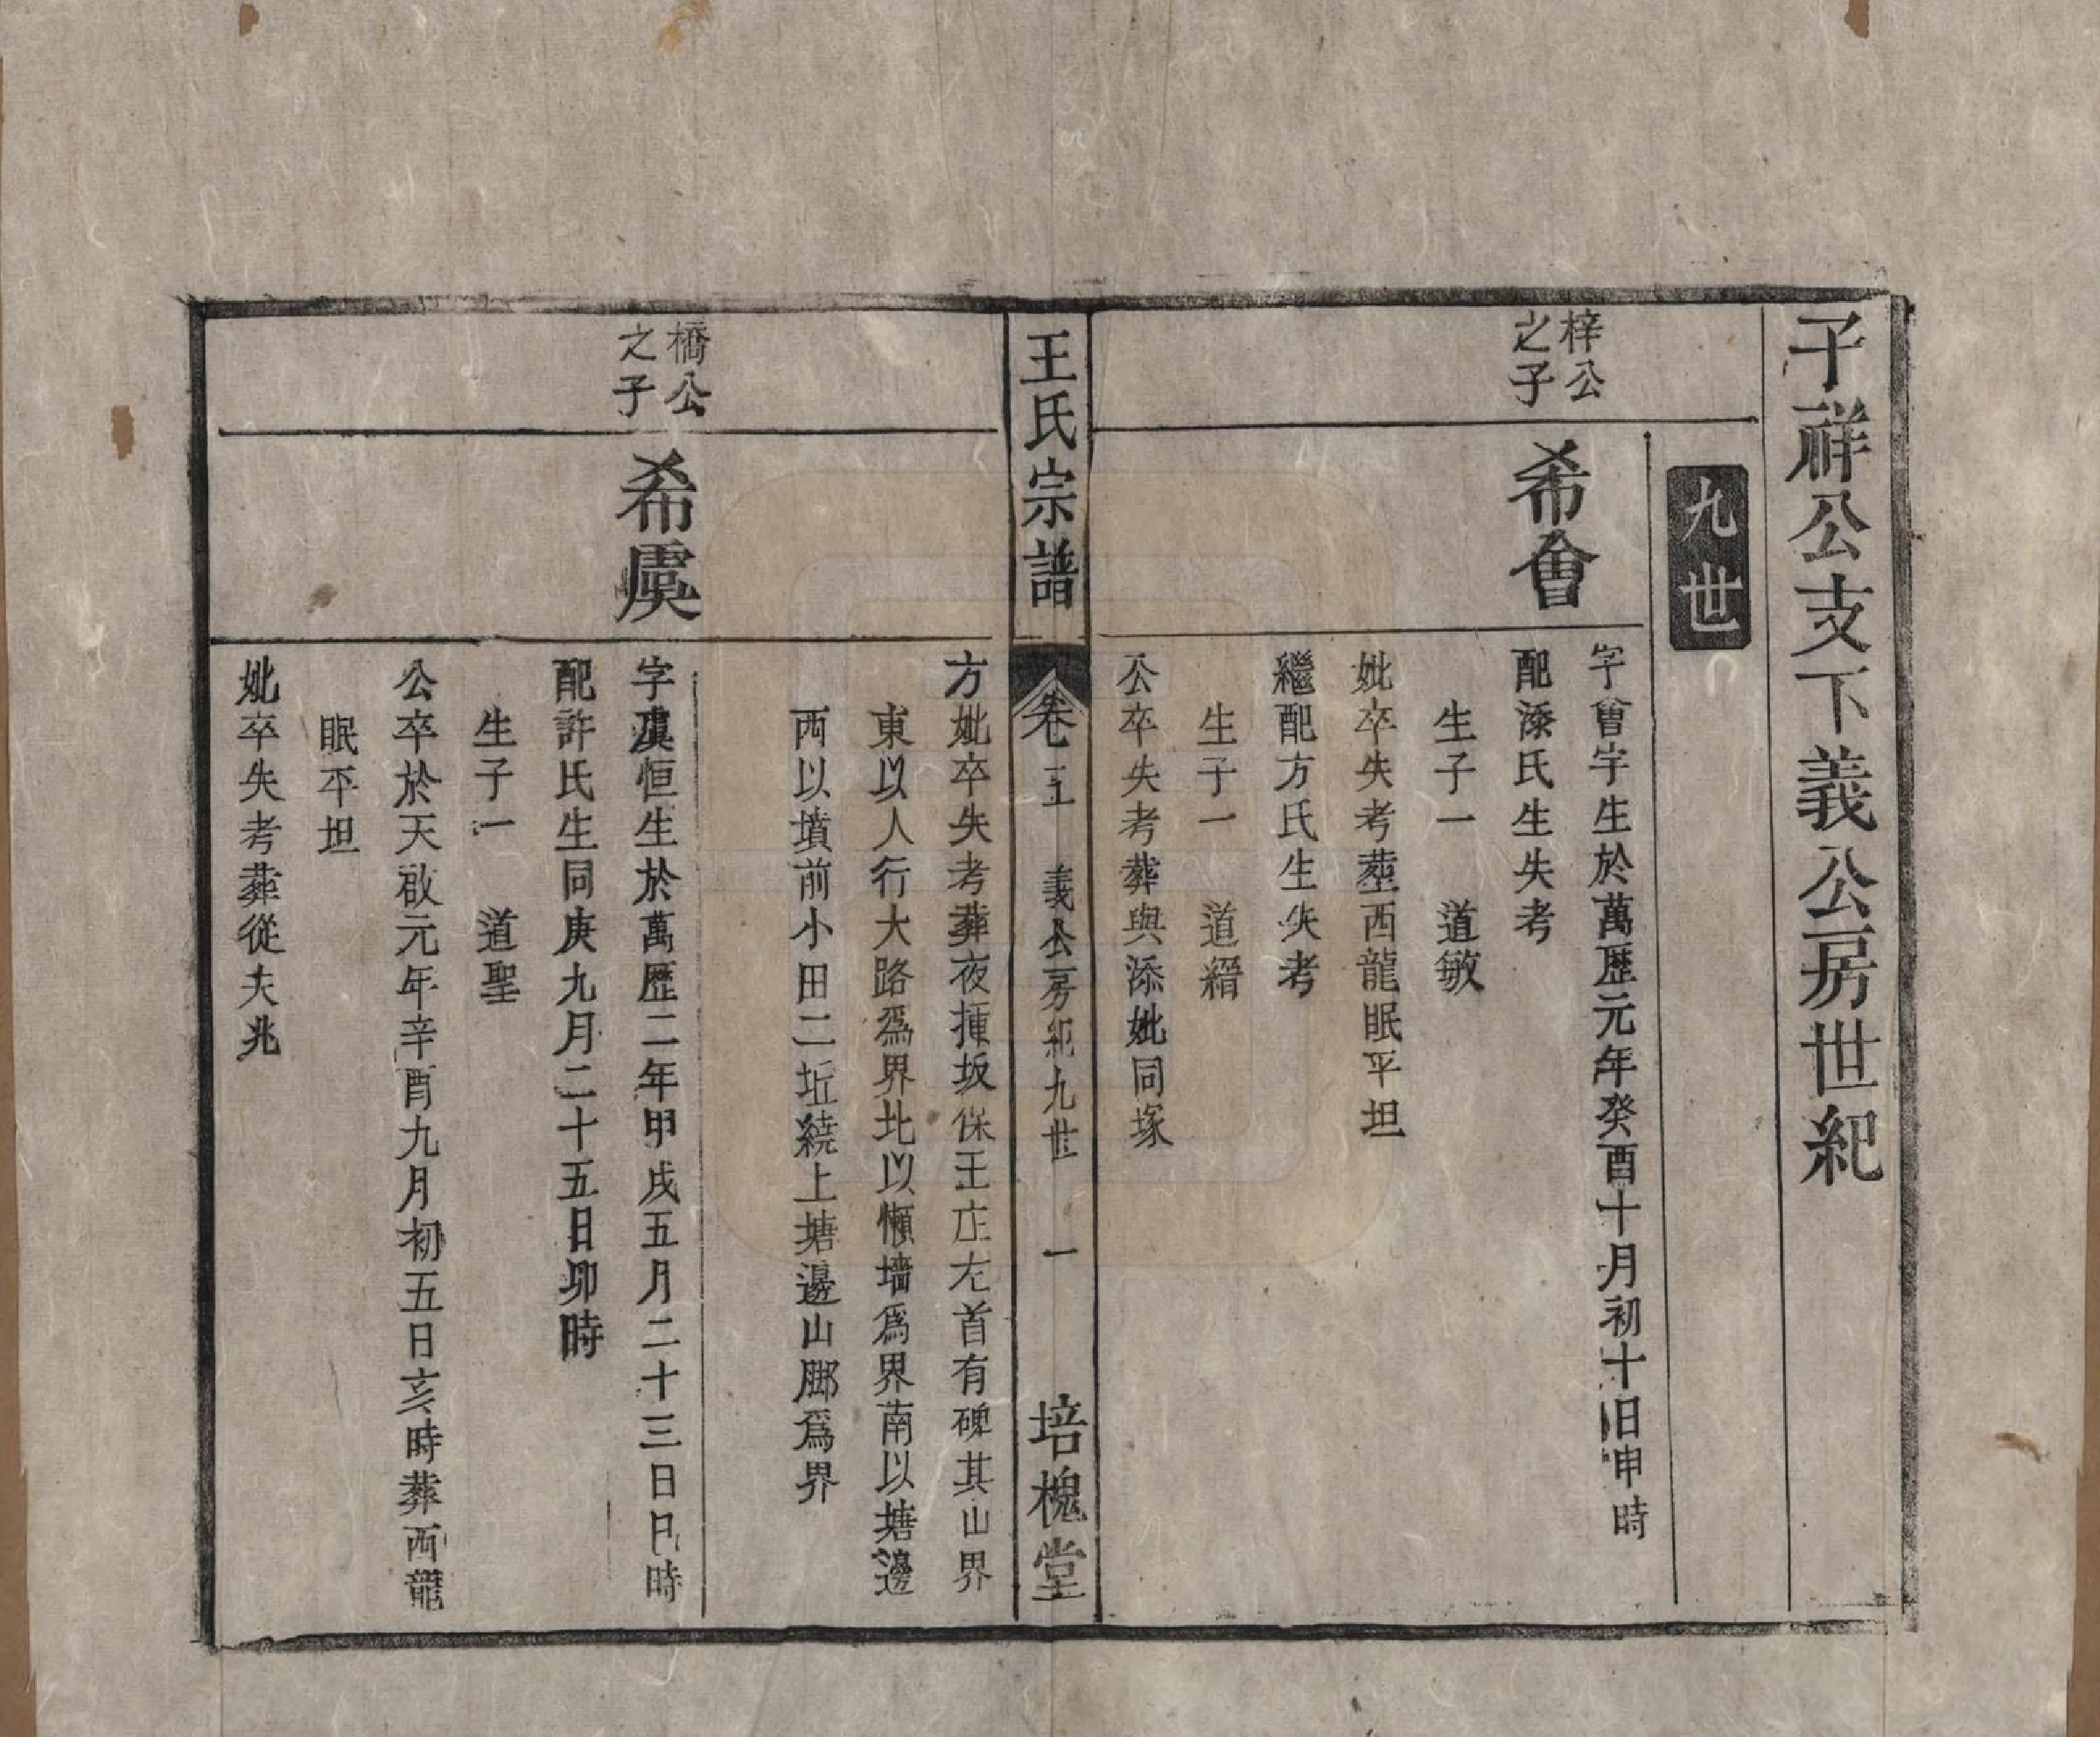 子祥公支下義公房世紀
九世
梓公
之子
希會
字會宇生於萬歷元年癸酉十月初十日申時
配漆氏生失考
生子一　道敏
妣卒失考塟西龍眠平坦
繼配方氏生失考
生子一　道縉
公卒失考葬與漆妣同塚
王氏宗譜
卷五　義公房紀九世　一
培槐堂
方妣卒失考葬夜揷坂保王庄左首有碑其山界
東以人行大路為界北以懶墻為界南以塘邊
西以墳前小田二坵繞上塘邊山脚為界
橋公
之子
希虞
字虞恒生於萬歷二年甲戌五月二十三日巳時
配許氏生同庚九月二十五日卯時
生子一　道聖
公卒於天啟元年辛酉九月初五日亥時葬西龍
眠平坦
妣卒失考葬從夫兆